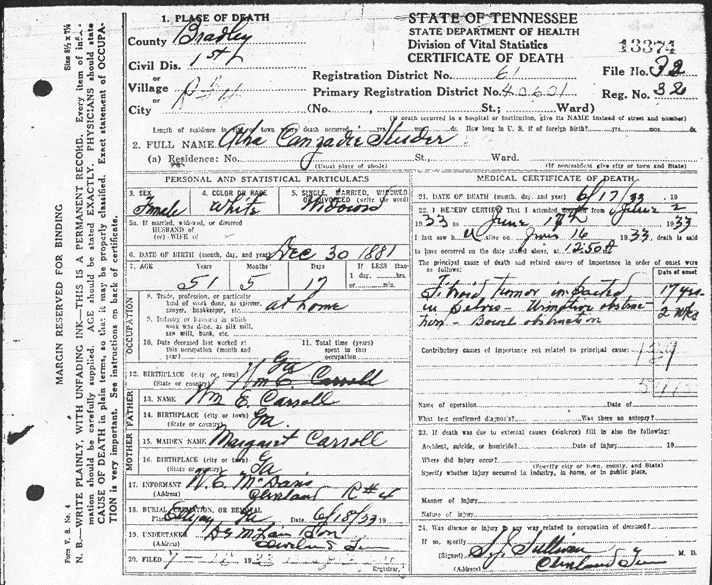 1. PLACE OF DEATH
County Bradley
Civil Dis. 1st
or
Village R#4
or
City
STATE OF TENNESSEE
STATE DEPARTMENT OF HEALTH
Division of Vital Statistics
CERTIFICATE OF DEATH
13374
Registration District No. 61
File No. 32
Primary Registration District No. 40601
Reg. No. 32
(No. St.; Ward)
(If death occurred in a hospital or institution, give its NAME instead of street and number)
Length of residence in city or town where death occurred yrs. mos. ds. How long in U. S. if of foreign birth? yrs. mos. ds.
2. FULL NAME
(a) Residence: No. St., Ward.
(Usual place of abode) (If nonresident give city or town and State)
PERSONAL AND STATISTICAL PARTICULARS
3. SEX
Female
4. COLOR OR RACE
White
5. SINGLE, MARRIED, WIDOWED
OR DIVORCED (write the word)
Widow
5a. If married, widowed, or divorced
HUSBAND of
(or) WIFE of
6. DATE OF BIRTH (month, day, and year) Dec 30 1881
7. AGE Years Months Days If LESS than
1 day, hrs.
or min.
51 5 17
OCCUPATION
8. Trade, profession, or particular
kind of work done, as spinner,
sawyer, bookkeeper, etc. at home
9. Industry or business in which
work was done, as silk mill,
saw mill, bank, etc.
10. Date deceased last worked at
this occupation (month and
year)
11. Total time (years)
spent in this
occupation
12. BIRTHPLACE (city or town) Ga
(State or country) Wm E Carroll
FATHER
13. NAME Wm E. Carroll
14. BIRTHPLACE (city or town) Ga.
(State or country)
MOTHER
15. MAIDEN NAME Margaret Carroll
16. BIRTHPLACE (city or town) Ga
(State or country)
17. INFORMANT W. E. McDaris
(Address) Cleveland R#4
18. BURIAL, CREMATION, OR REMOVAL
Place Ellijay Ga Date 6/18/33 19
19. UNDERTAKER
(Address) Cleveland Tenn
20. FILED
Registrar.
MEDICAL CERTIFICATE OF DEATH
21. DATE OF DEATH (month, day, and year) 6/17/33 , 19
22. I HEREBY CERTIFY, That I attended deceased from June 2
1933 to June 17th 1933
I last saw h alive on June 16 1933 death is said
to have occurred on the date stated above, at 12:50 A
The principal cause of death and related causes of importance in order of onset were
as follows:
Date of onset
Fibroid tumor impacted 17 yrs
in Pelvis - obstruc- 2 wks
tion - Bowel obstruction
Contributory causes of importance not related to principal cause:
Name of operation Date of
What test confirmed diagnosis? Was there an autopsy?
23. If death was due to external causes (violence) fill in also the following:
Accident, suicide, or homicide? Date of injury 19
Where did injury occur?
(Specify city or town, county, and State)
Specify whether injury occurred in industry, in home, or in public place.
Manner of injury
Nature of injury
24. Was disease or injury in any way related to occupation of deceased?
If so, specify
(Signed) S. J. Sullivan M. D.
(Address) Cleveland Tenn
Form V. S. No. 4
MARGIN RESERVED FOR BINDING
Size 8½ x 7½
N. B.—WRITE PLAINLY, WITH UNFADING INK—THIS IS A PERMANENT RECORD. Every item of infor-
mation should be carefully supplied. AGE should be stated EXACTLY. PHYSICIANS should state
CAUSE OF DEATH in plain terms, so that it may be properly classified. Exact statement of OCCUPA-
TION is very important. See instructions on back of certificate.